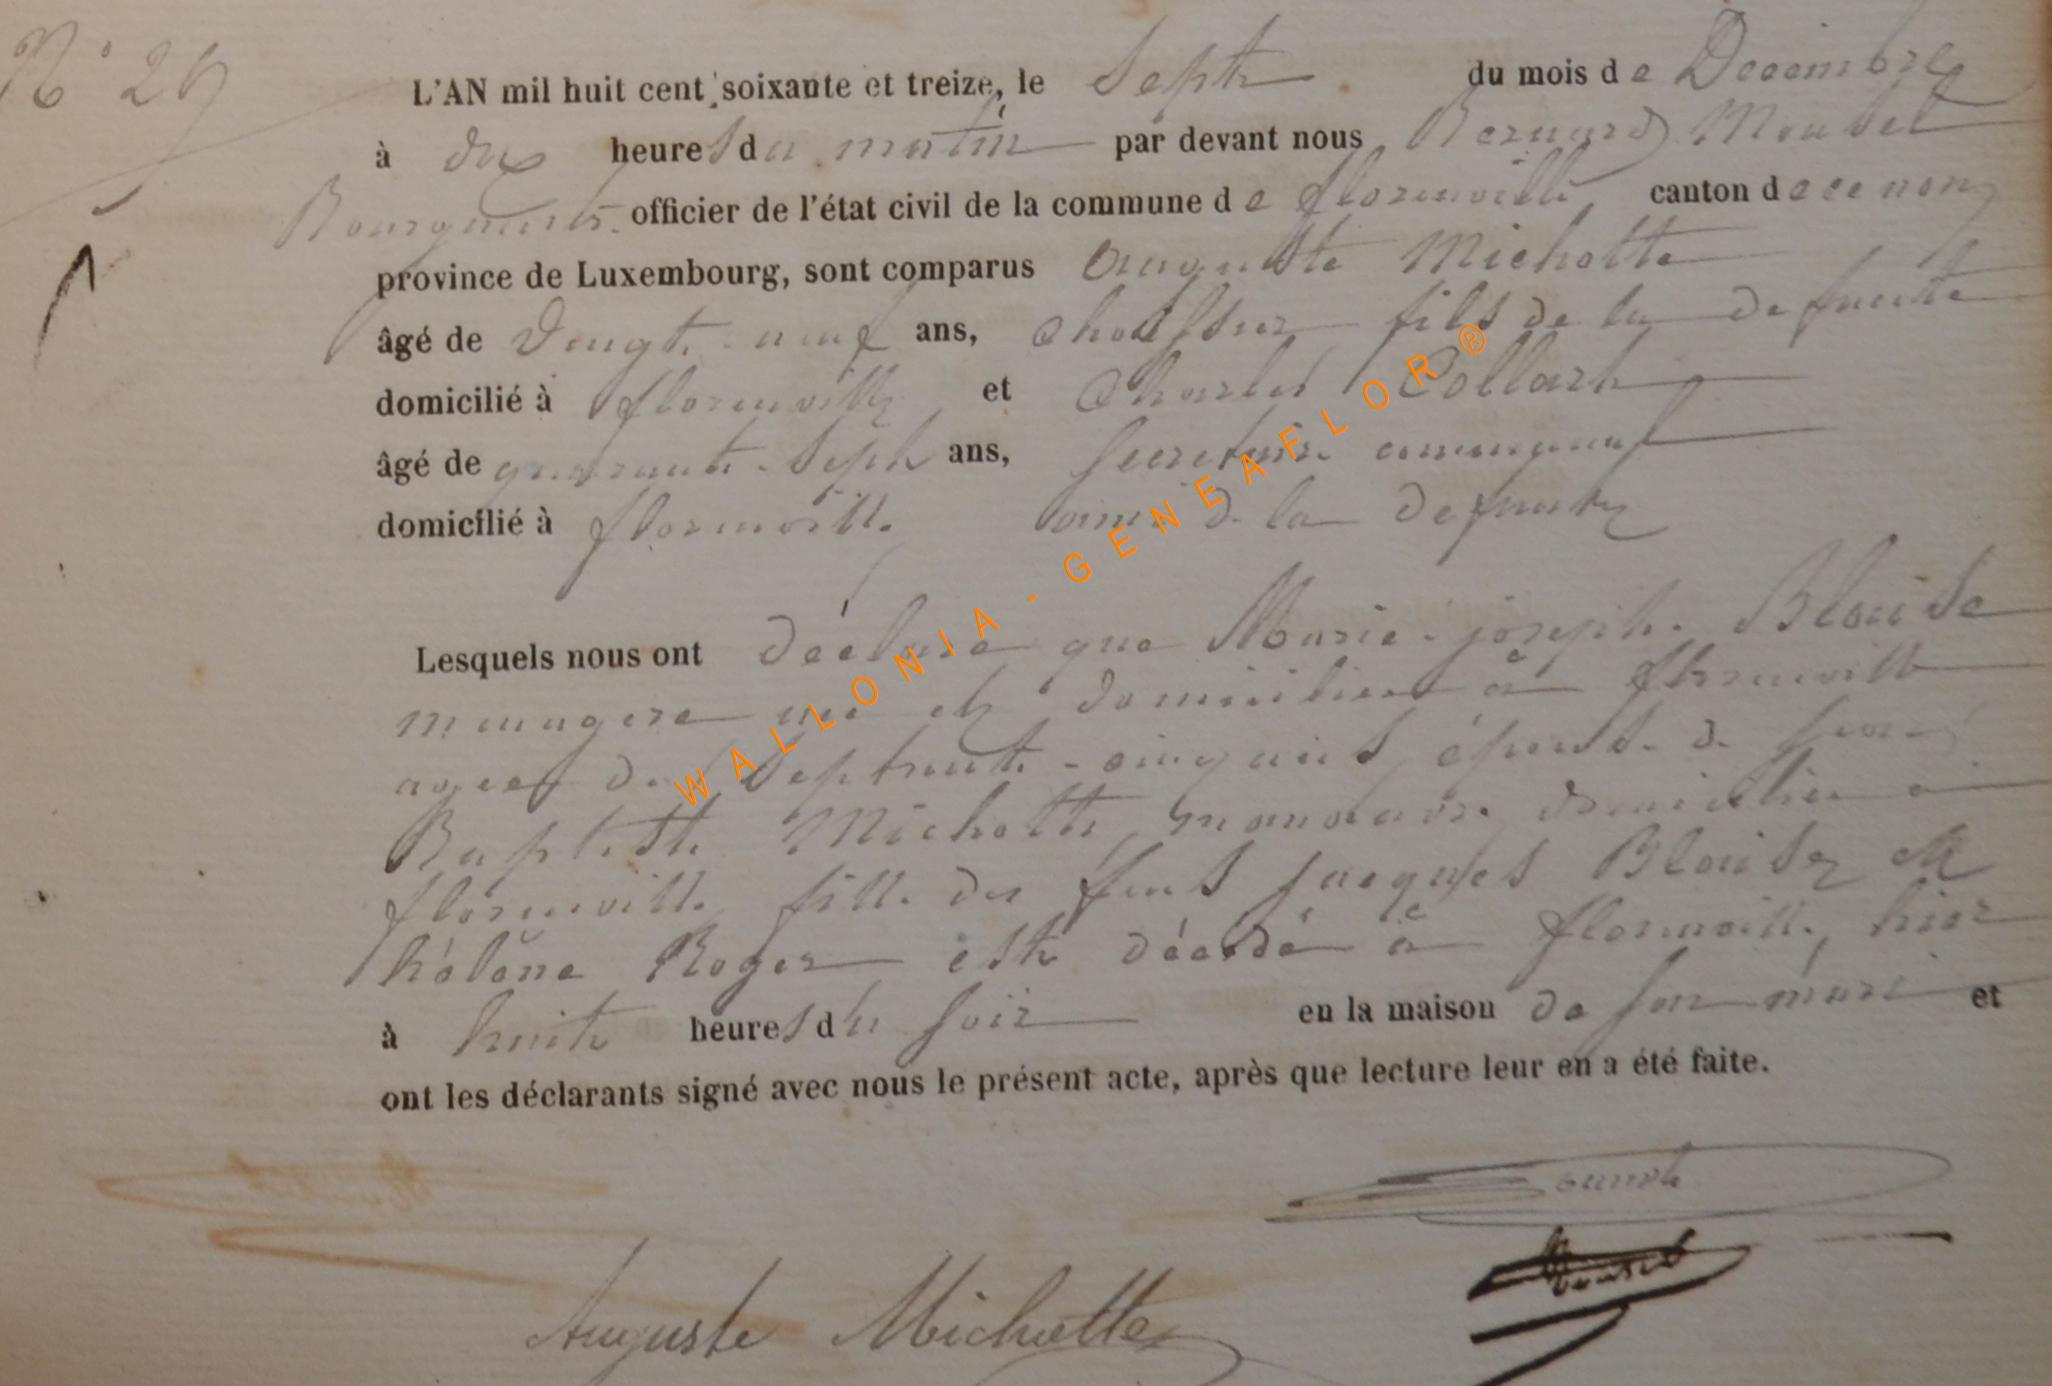 N° 29
L'AN mil huit cent soixante et treize, le Sept du mois de Décembre
à dix heures du matin par devant nous Bernard Mousel
Bourgmestre officier de l'état civil de la commune de florenville canton de ce nom
province de Luxembourg, sont comparus Auguste Michotte
âgé de Vingt-neuf ans, fils de la defunte
domicilié à florenville et Charles Collart
âgé de quarante-Sept ans, Secretaire communal
domicilié à florenville ami de la defunte
Lesquels nous ont déclaré que Marie-joseph Blaise
menagere née et domiciliée à florenville
agée de Septante-cinq ans, épouse de jean
Baptiste Michotte, manœuvre domicilié à
florenville fille des feus jacques Blaise et
hélène Roger est décédé à florenville, hier
à huit heures du soir en la maison de son mari et
ont les déclarants signé avec nous le présent acte, après que lecture leur en a été faite.
Auguste Michotte
WALLONIA-GENEAFLOR®